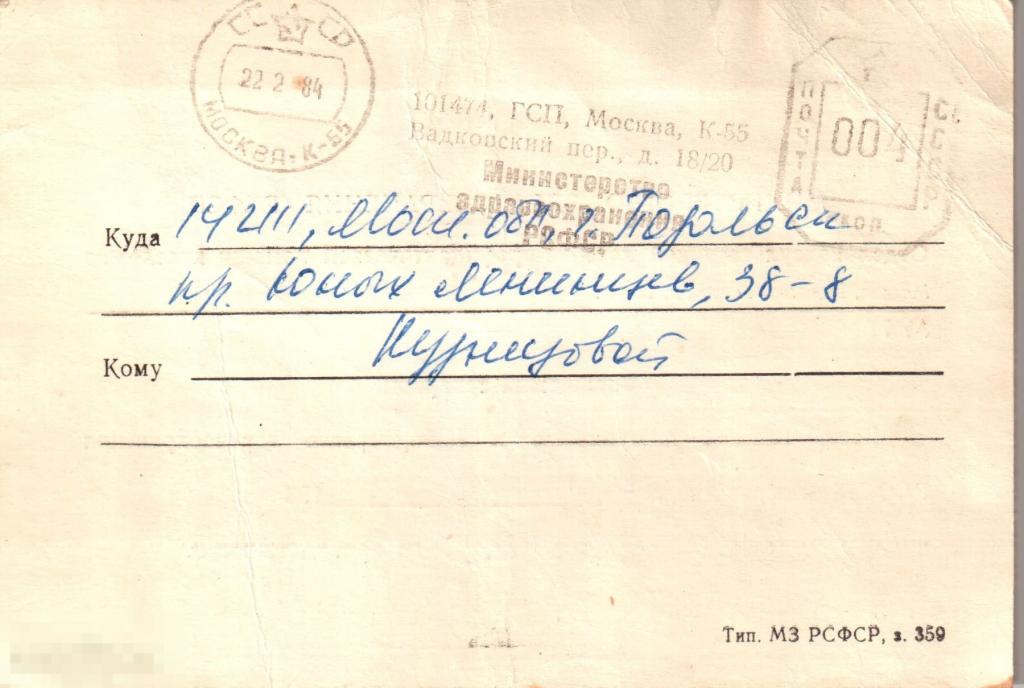 СССР
22 2 84
МОСКВА · К-55
101474, ГСП, Москва, К-55
Вадковский пер., д. 18/20
Министерство
здравоохранения
РСФСР
ПОЧТА
СССР
004
коп.
Куда 142111, Моск. обл, г. Подольск
пр. Юных Ленинцев, 38-8
Кому Кузнецовой
Тип. МЗ РСФСР, з. 359